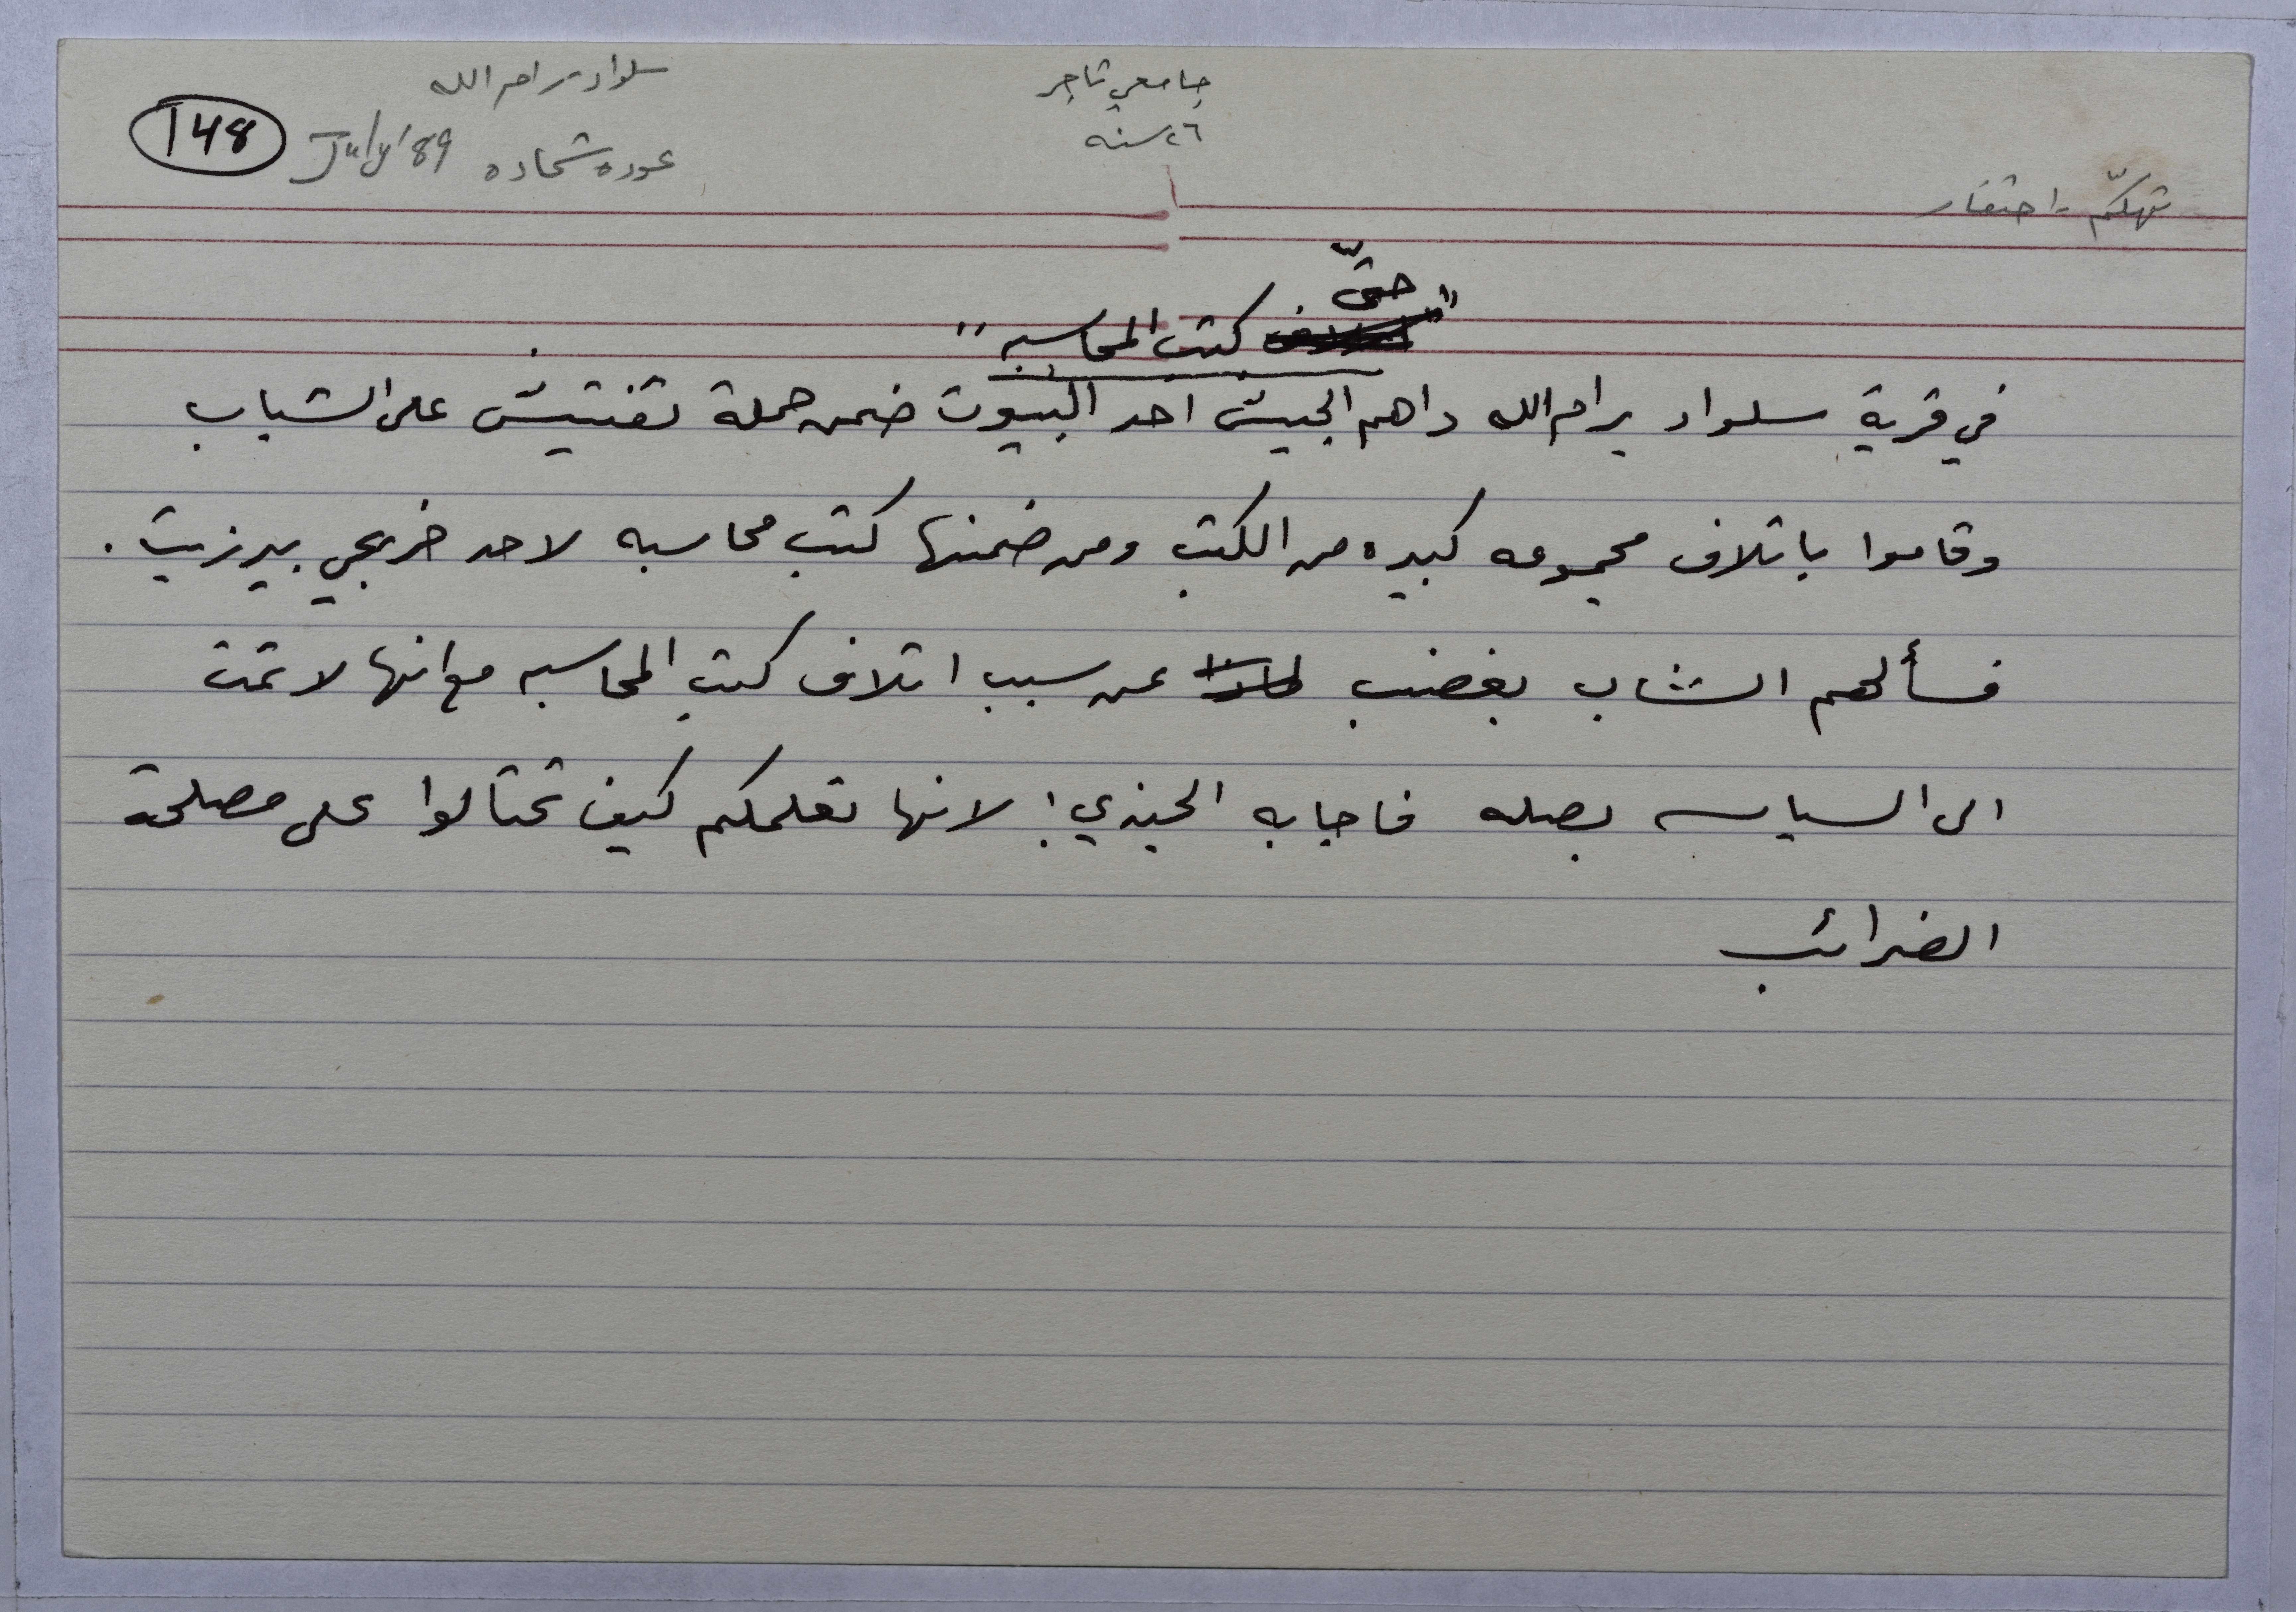 سلواد - رام الله
جامعي تاجر
148
عوده شحاده July '89
٢٦ سنه
تهكّم - احتقار
"حتّى كتب المحاسبه"
في قرية سلواد برام الله داهم الجيش احد البيوت ضمن حملة تفتيش على الشباب
وقاموا باتلاف مجموعه كبيره من الكتب ومن ضمنها كتب محاسبه لاحد خريجي بيرزيت .
فسألهم الشاب بغضب عن سبب اتلاف كتب المحاسبه مع انها لا تمت
الى السياسه بصله فاجابه الجندي: لانها تعلمكم كيف تحتالوا على مصلحة
الضرائب